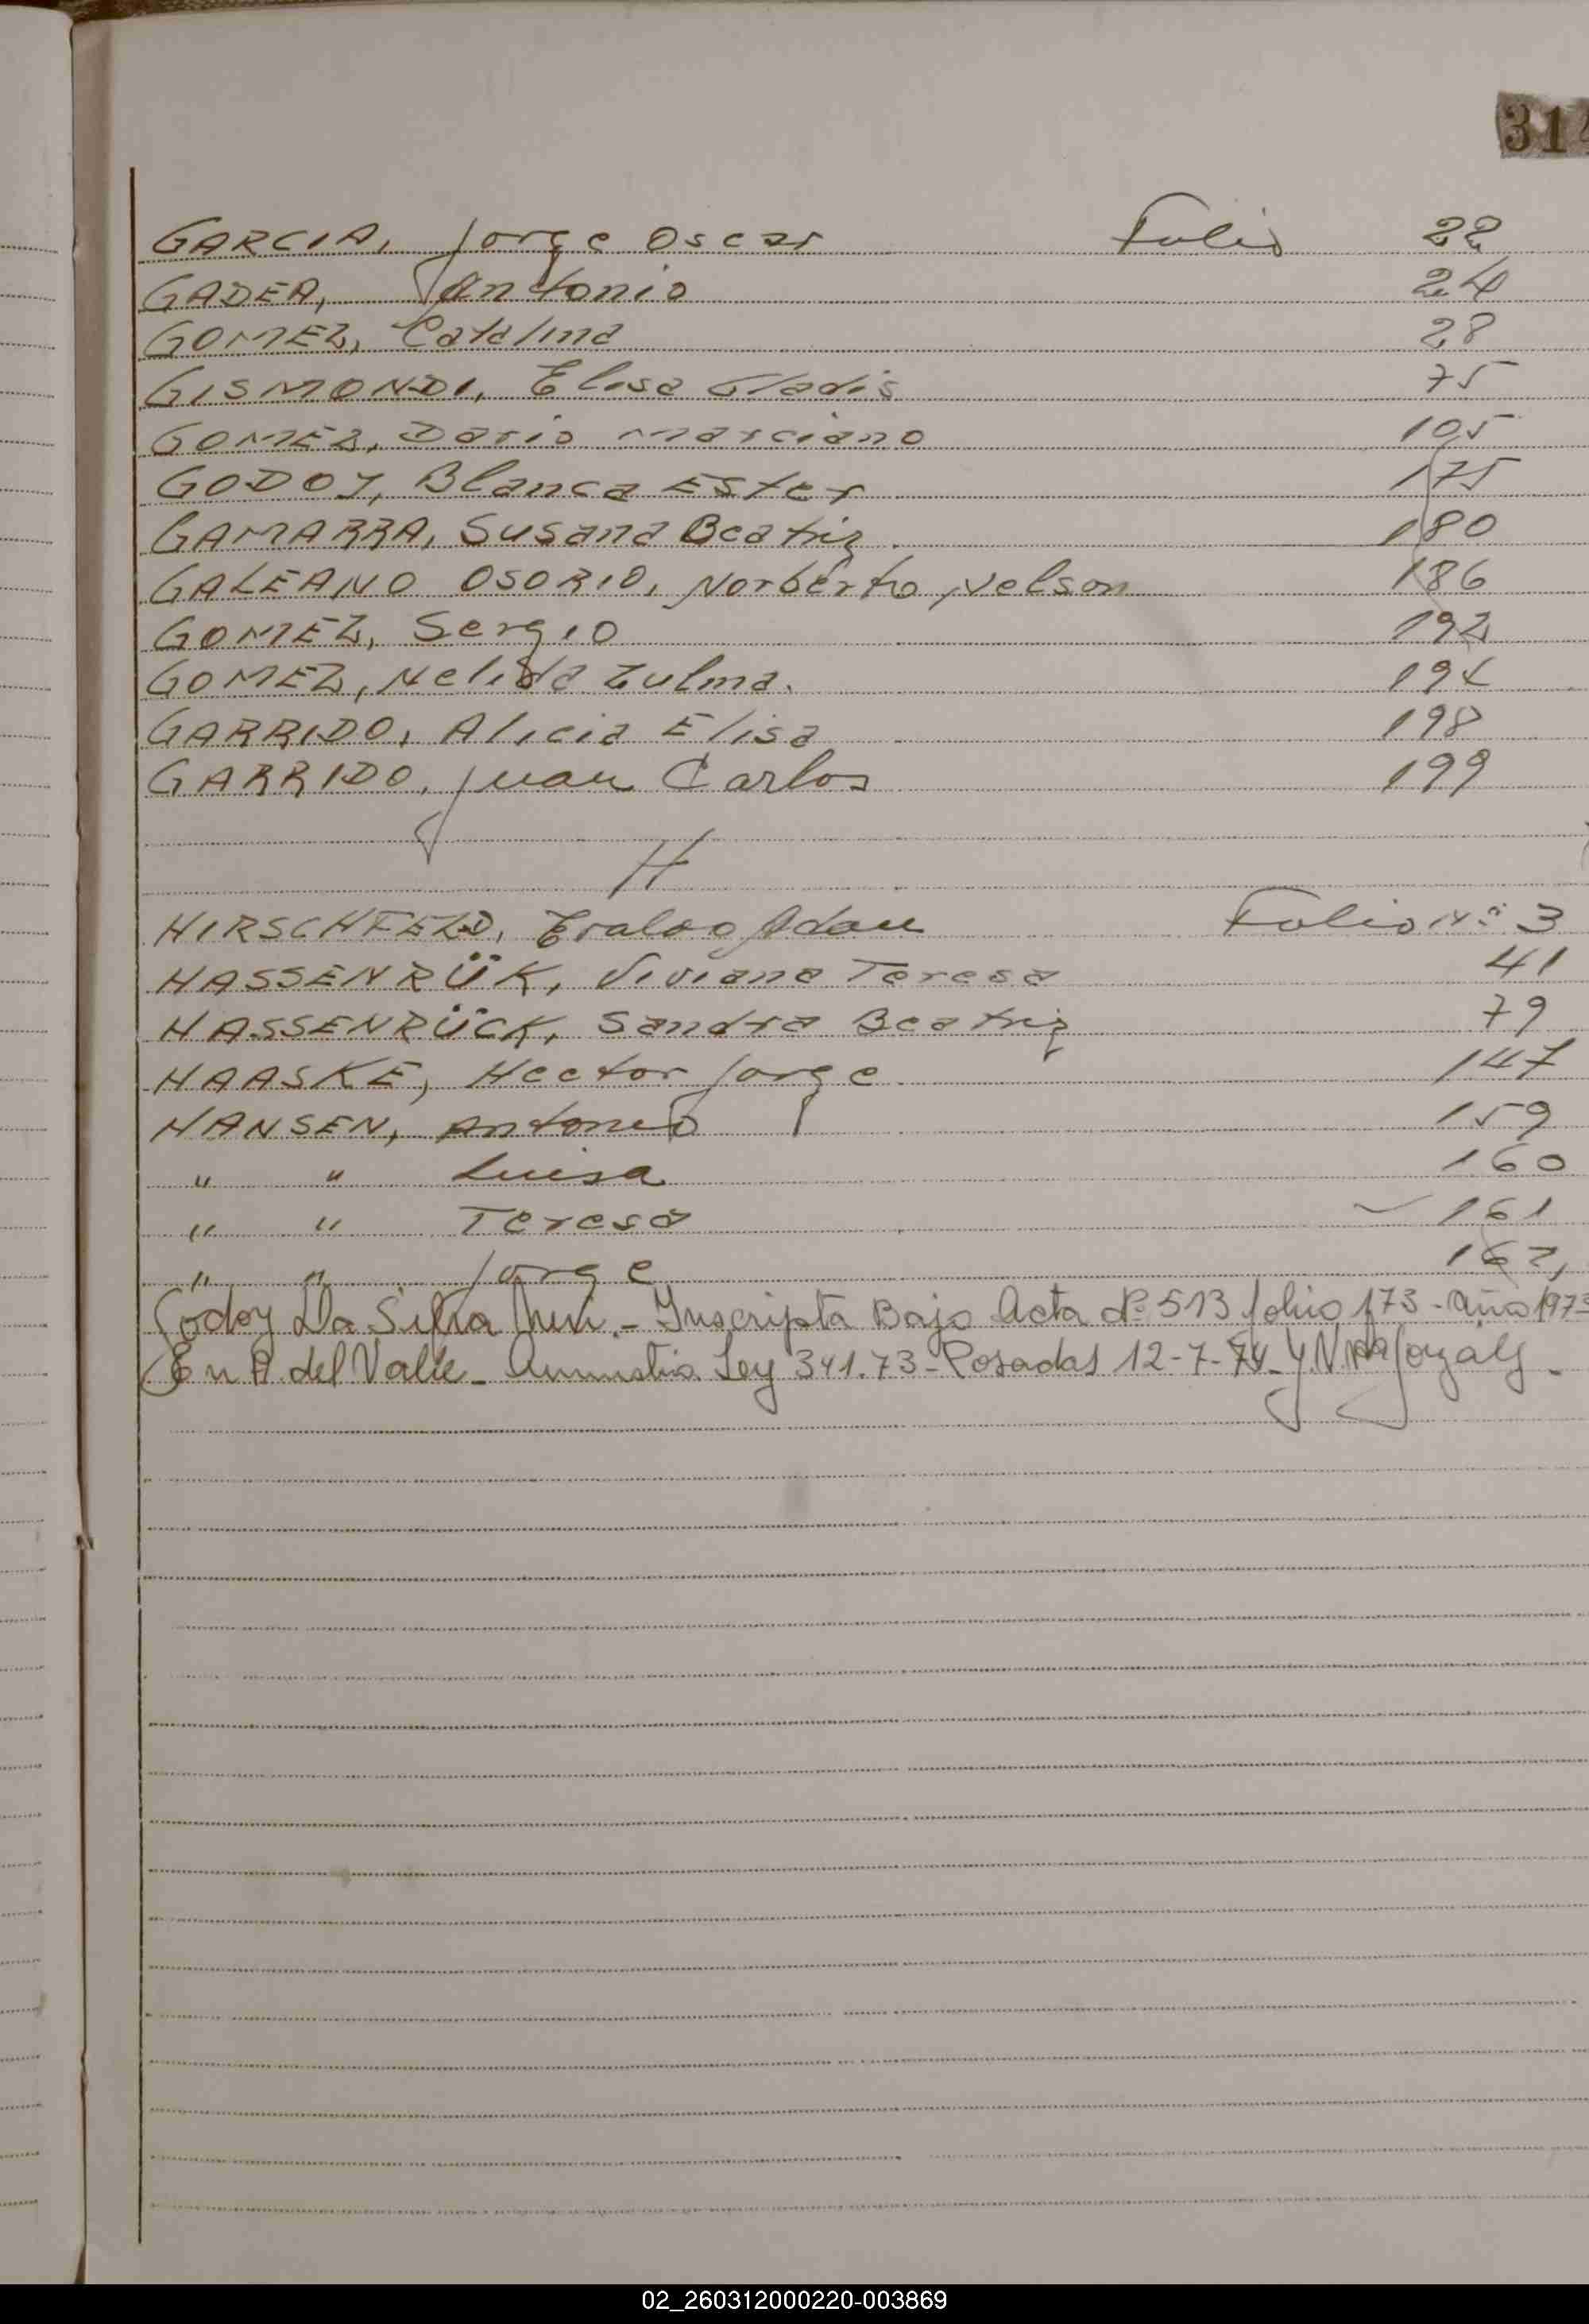 314
GARCIA, Jorge Oscar Folio 22
GADEA, Antonio 24
GOMEZ, Catalina 28
GISMONDI, Elisa Gladis 75
GOMEZ, Dario Marciano 105
GODOY, Blanca Ester 175
GAMARRA, Susana Beatriz 180
GALEANO OSORIO, Norberto Nelson 186
GOMEZ, Sergio 192
GOMEZ, Nelida Zulma. 194
GARRIDO, Alicia Elisa 198
GARRIDO, Juan Carlos 199
H
HIRSCHFELD, Adan Folio Nº 3
HASSENRÜK, Viviana Teresa 41
HASSENRÜCK, Sandra Beatriz 79
HAASKE, Hector Jorge 147
HANSEN, Antonio 159
" " Luisa 160
" " Teresa 161
" " Jorge 162,
Godoy Da Silva - Inscripta Bajo Acta Nº 513 folio 173 - año 1973
En A. del Valle - Amnistia Ley 341.73 - Posadas 12-7-74
02_260312000220-003869